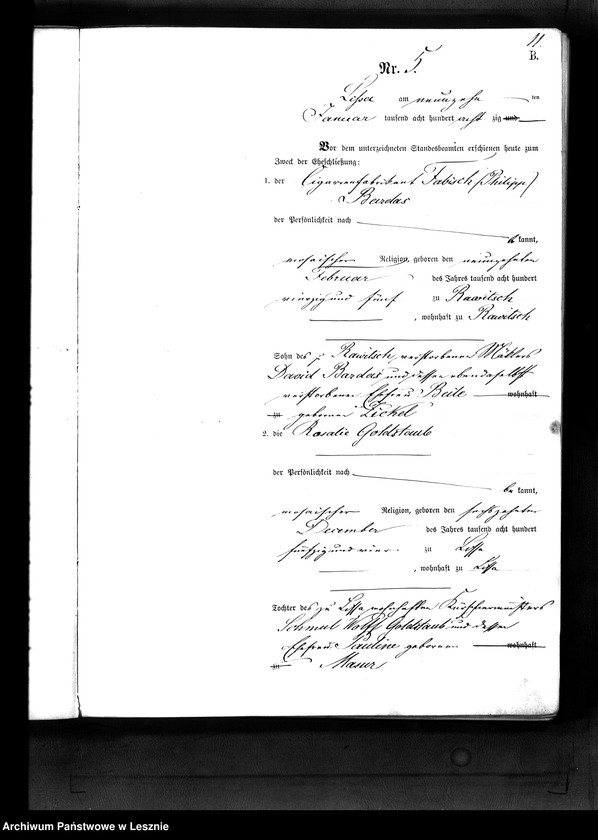 11.
B.
Nr. 5.
Lissa am neunzehn ten
Januar tausend acht hundert acht zig und
Vor dem unterzeichneten Standesbeamten erschienen heute zum
Zweck der Eheschließung:
1. der Cigarrenfabrikant Fabisch (Philipp)
Bardas
der Persönlichkeit nach
kannt,
mosaischer Religion, geboren den neunzehnten
Februar des Jahres tausend acht hundert
vierzig und fünf zu Rawitsch
, wohnhaft zu Rawitsch
Sohn des zu Rawitsch verstorbenen Mäklers
David Bardas und dessen ebendaselbst
verstorbener Ehefrau Beile wohnhaft
zu geborner Zickel
2. die Rosalie Goldstaub
der Persönlichkeit nach
be kannt,
mosaischer Religion, geboren den sechszehnten
December des Jahres tausend acht hundert
fünfzig und vier zu Lissa
, wohnhaft zu Lissa
Tochter des zu Lissa wohnhaften Kürschnermeisters
Schmul Wolff Goldstaub und dessen
Ehefrau Pauline geborenen wohnhaft
zu Masur
Archiwum Państwowe w Lesznie